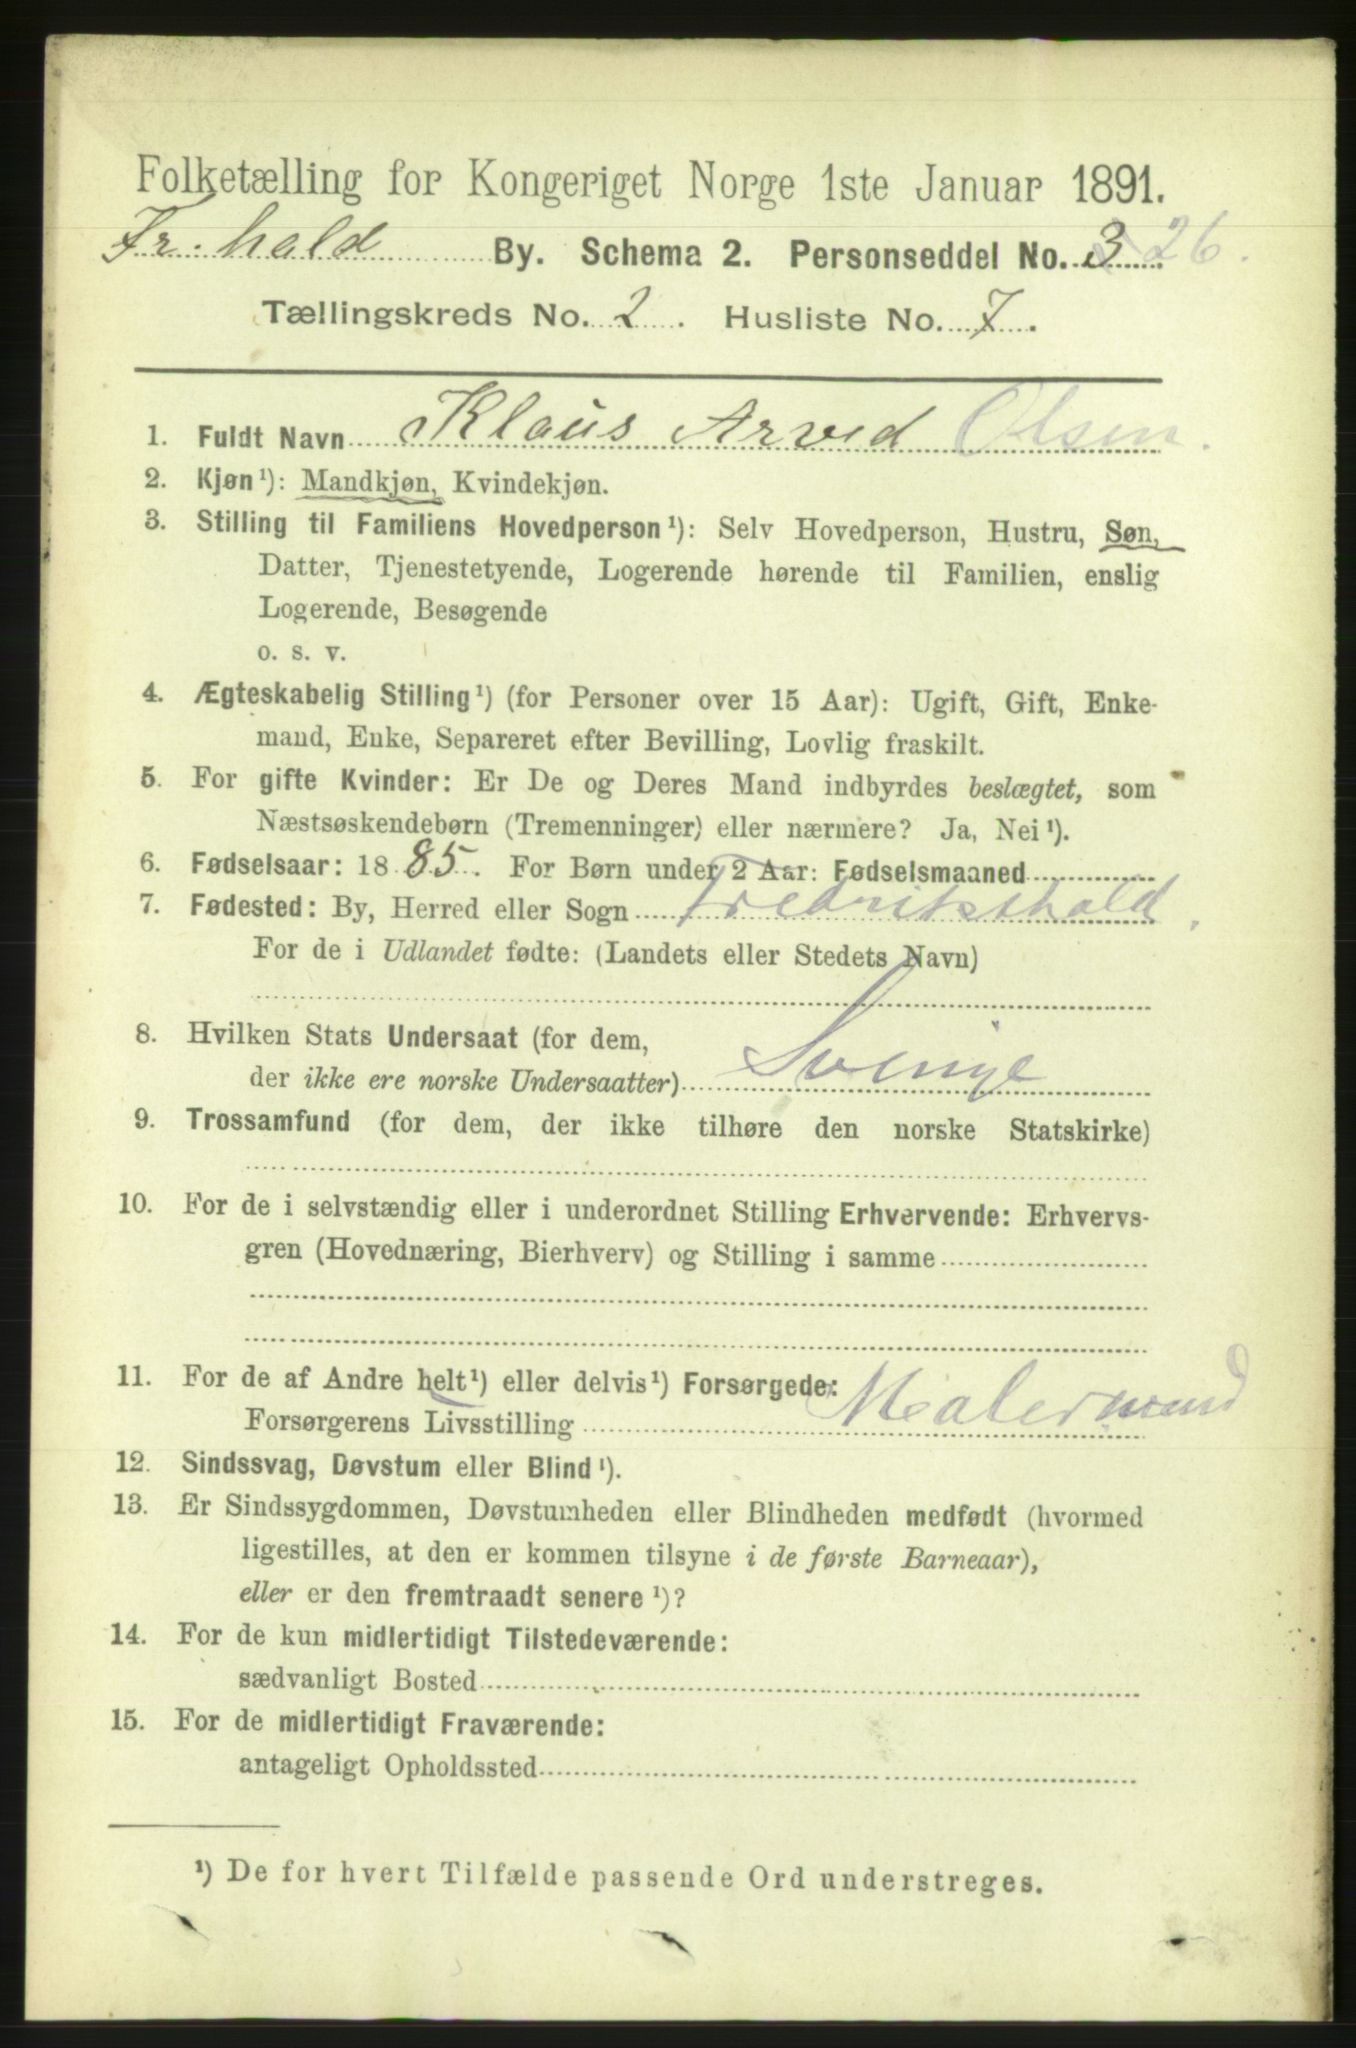 Folketælling for Kongeriget Norge 1ste Januar 1891.
Fr.hald By. Schema 2. Personseddel No. 3 26.
Tællingskreds No. 2. Husliste No. 7.
1. Fuldt Navn Klaus Arved Olsen.
2. Kjøn¹): Mandkjøn, Kvindekjøn.
3. Stilling til Familiens Hovedperson¹): Selv Hovedperson, Hustru, Søn,
Datter, Tjenestetyende, Logerende hørende til Familien, enslig
Logerende, Besøgende
o. s. v.
4. Ægteskabelig Stilling¹) (for Personer over 15 Aar): Ugift, Gift, Enke-
mand, Enke, Separeret efter Bevilling, Lovlig fraskilt.
5. For gifte Kvinder: Er De og Deres Mand indbyrdes beslægtet, som
Næstsøskendebørn (Tremenninger) eller nærmere? Ja, Nei¹).
6. Fødselsaar: 1885. For Børn under 2 Aar: Fødselsmaaned
7. Fødested: By, Herred eller Sogn Fredrikshald.
For de i Udlandet fødte: (Landets eller Stedets Navn)
8. Hvilken Stats Undersaat (for dem,
der ikke ere norske Undersaatter) Sverige
9. Trossamfund (for dem, der ikke tilhøre den norske Statskirke)
10. For de i selvstændig eller i underordnet Stilling Erhvervende: Erhvervs-
gren (Hovednæring, Bierhverv) og Stilling i samme
11. For de af Andre helt¹) eller delvis¹) Forsørgede:
Forsørgerens Livsstilling Malersvend
12. Sindssvag, Døvstum eller Blind¹).
13. Er Sindssygdommen, Døvstumheden eller Blindheden medfødt (hvormed
ligestilles, at den er kommen tilsyne i de første Barneaar),
eller er den fremtraadt senere¹)?
14. For de kun midlertidigt Tilstedeværende:
sædvanligt Bosted
15. For de midlertidigt Fraværende:
antageligt Opholdssted
¹) De for hvert Tilfælde passende Ord understreges.